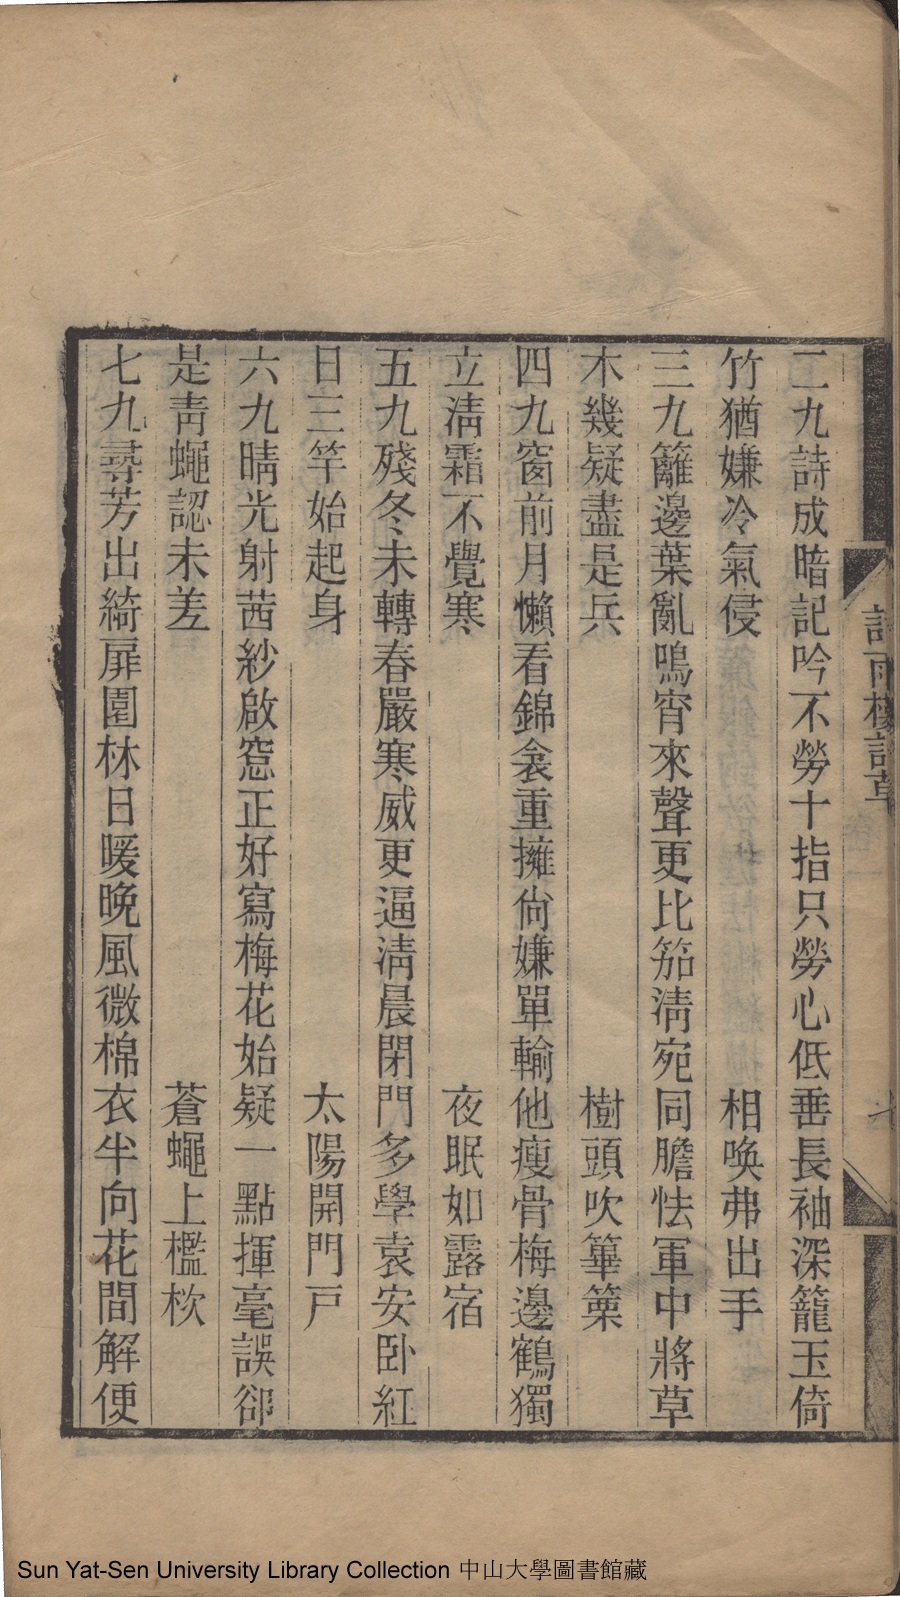 二九詩成暗記吟不勞十指只勞心低垂長袖深籠玉倚
竹猶嫌冷氣侵　相喚弗出手
三九籬邊葉亂鳴宵來聲更比笳淸宛同膽怯軍中將草
木幾疑盡是兵　樹頭吹篳篥
四九窗前月懶看錦衾重擁尙嫌單輸他瘦骨梅邊鶴獨
立淸霜不覺寒　夜眠如露宿
五九殘冬未轉春嚴寒威更逼淸晨閉門多學袁安卧紅
日三竿始起身　太陽開門戸
六九晴光射茜紗啟窓正好寫梅花始疑一點揮毫誤卻
是靑蠅認未差　蒼蠅上檻栨
七九尋芳出綺扉園林日暖晚風微棉衣半向花間解便
雨樓詩草
卷一
Sun Yat-Sen University Library Collection 中山大學圖書館藏